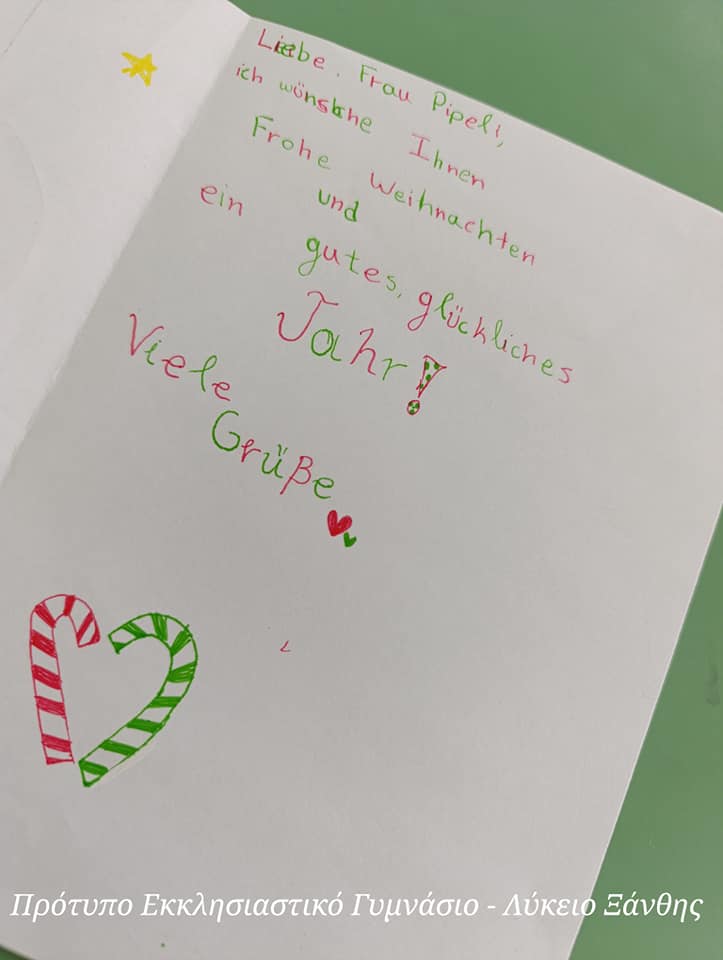 Liebe, Frau Pipeli,
ich wünsche Ihnen
Frohe Weihnachten
und
ein gutes, glückliches
Jahr!
Viele
Grüße
Πρότυπο Εκκλησιαστικό Γυμνάσιο - Λύκειο Ξάνθης